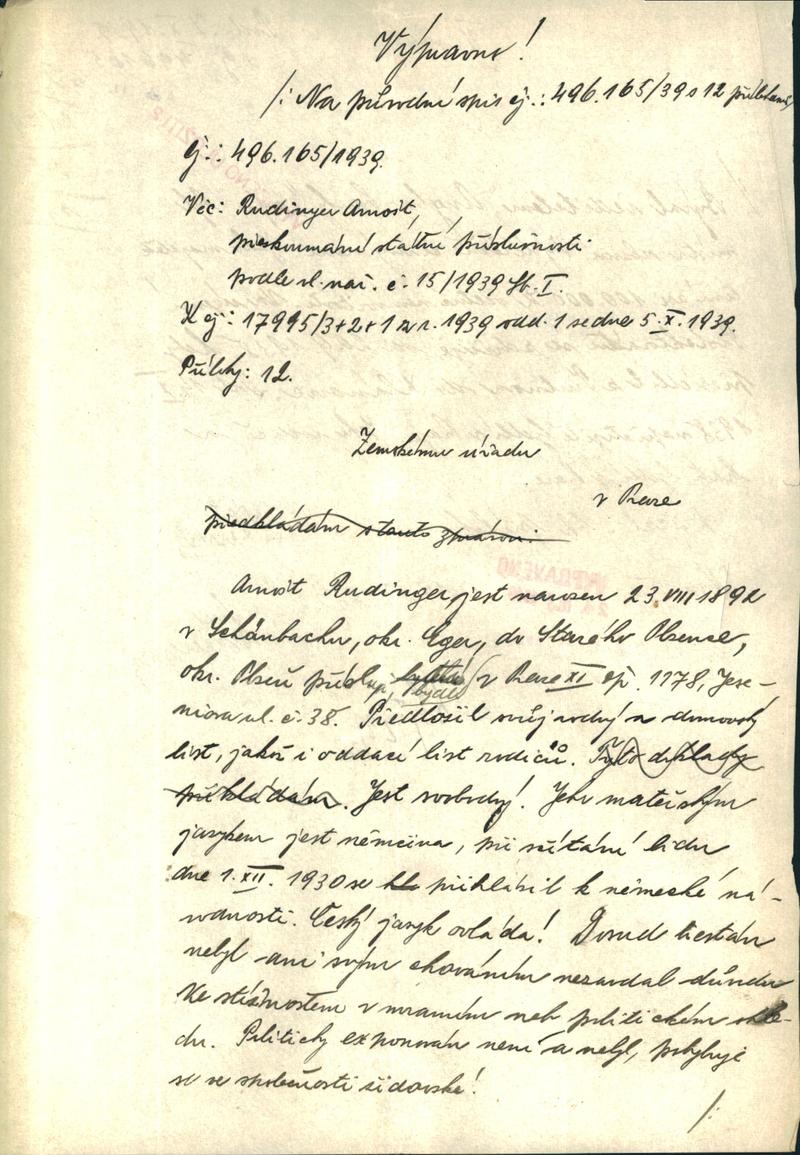 Výpravně!
/: Na původní spis čj.: 496.165/39 s 12 přílohami
čj.: 496.165/1939.
Věc: Rudinger Arnošt,
přezkoumání státní příslušnosti
podle vl. nař. č. 15/1939 Sb. I.
K čj: 17995/3+2+1 z r. 1939 odd. 1 ze dne 5.X.1939.
Přílohy: 12.
Zemskému úřadu
v Praze
předkládám s touto zprávou:
Arnošt Rudinger, jest narozen 23.VIII 1892
v Schönbachu, okr. Eger, do Starého Plzence,
okr. Plzeň přísluš., bydlí v Praze XI čp. 1178, Jese-
niova ul. č. 38. Předložil svůj rodný a domovský
list, jakož i oddací list rodičů. Tyto doklady
přikládám. Jest svobodný. Jeho mateřským
jazykem jest němčina, při sčítání lidu
dne 1.XII. 1930 se přihlásil k německé ná-
rodnosti. Český jazyk ovládá! Dosud trestán
nebyl ani svým chováním nezavdal důvodu
ke stížnostem v mravním neb politickém ohle-
du. Politicky exponován není a nebyl, pohybuje
se ve společnosti židovské!
/: